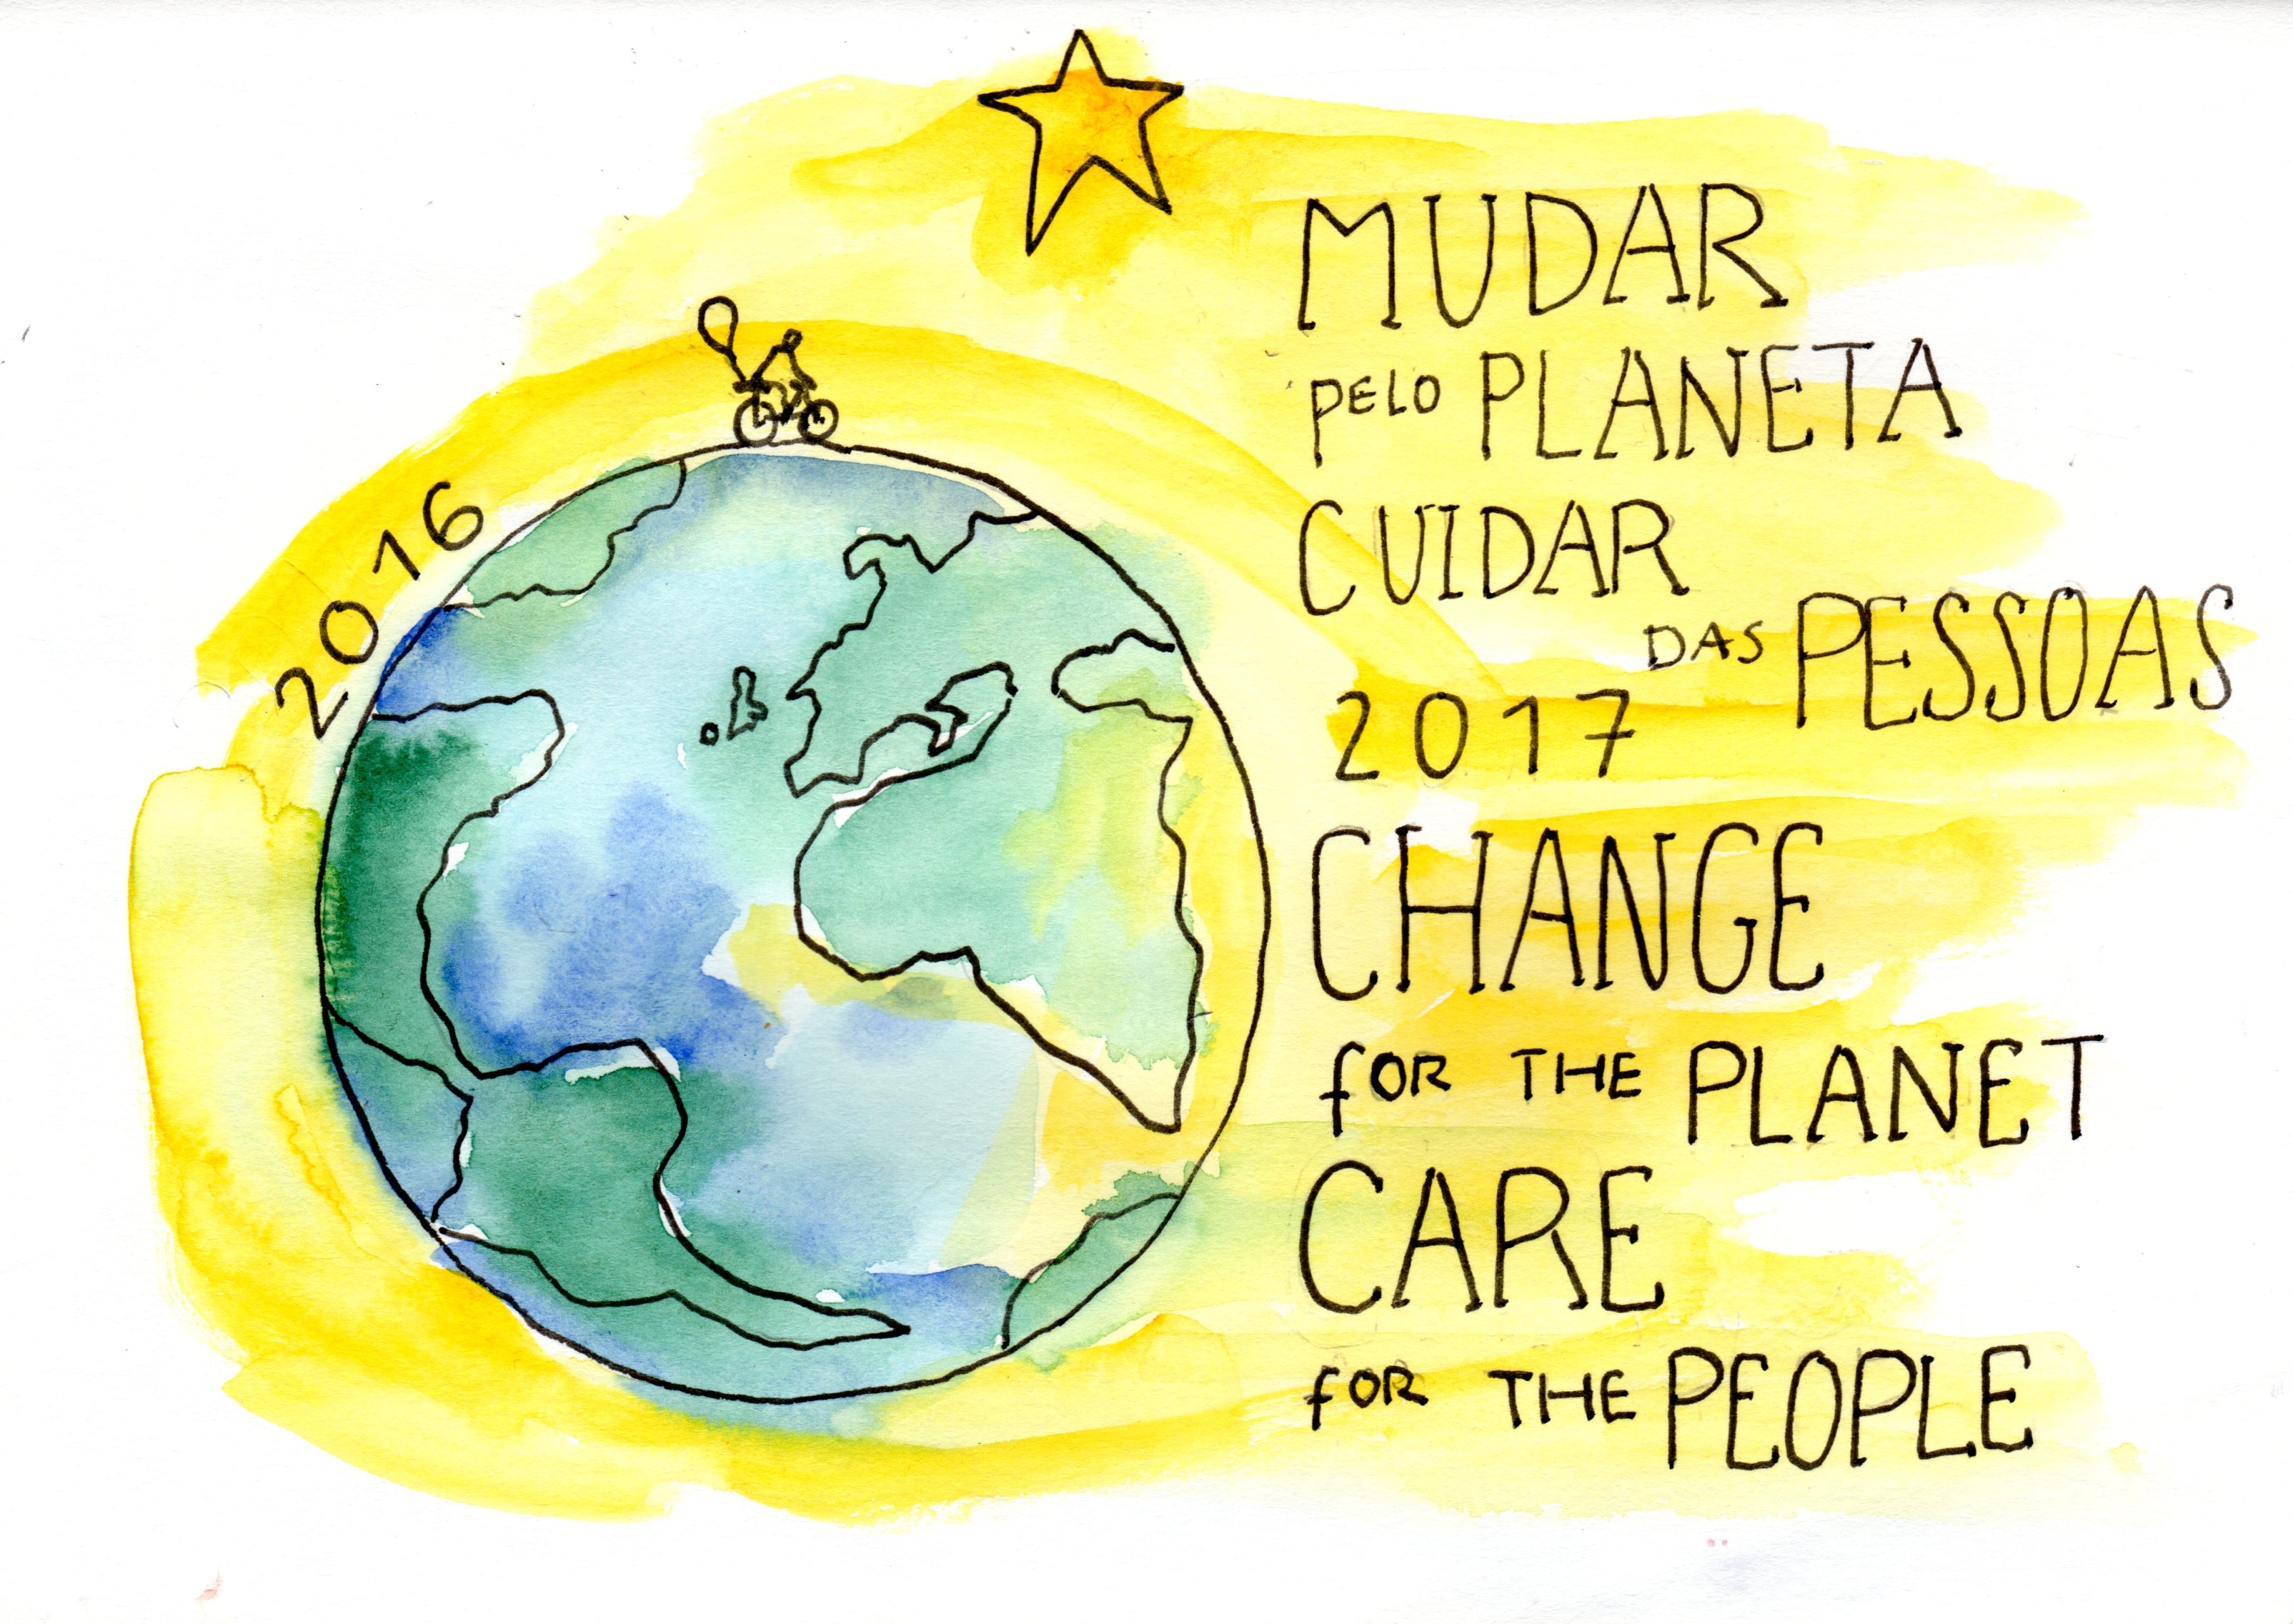 2016
MUDAR
PELO PLANETA
CUIDAR
DAS PESSOAS
2017
CHANGE
fOR THE PLANET
CARE
fOR THE PEOPLE